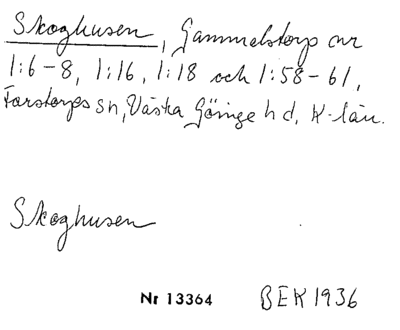 Skoghusen, Gammelstorp nr
1:6-8, 1:16, 1:18 och 1:58-61,
Farstorps sn, Västra Göinge hd, K-län.
Skoghusen
Nr 13364 BEK 1936